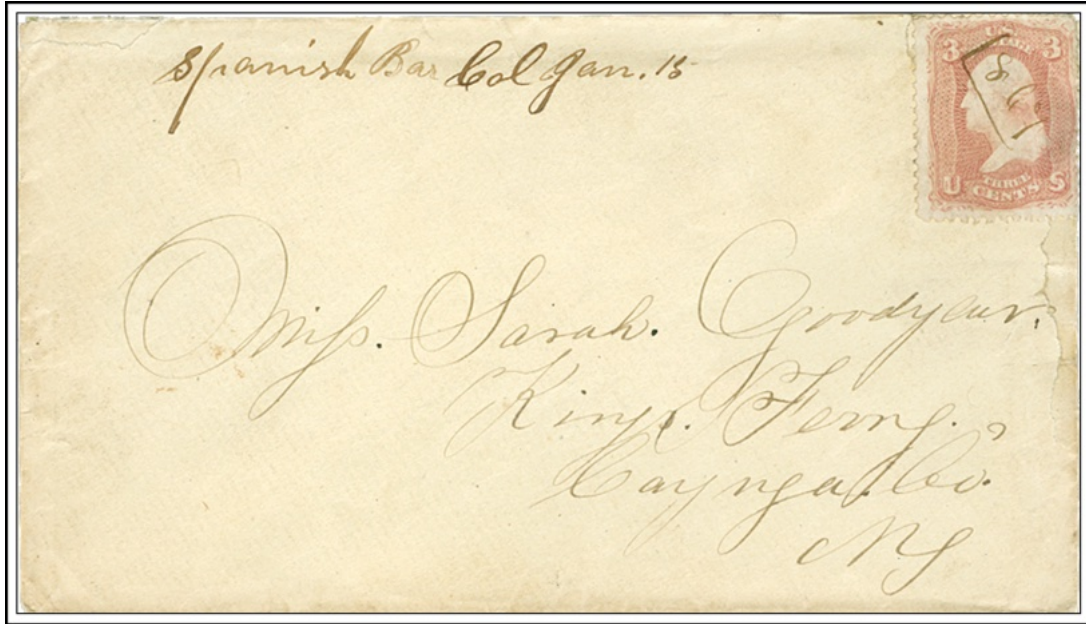 Spanish Bar Col Jan. 15
3 U.S. POSTAGE 3
U THREE CENTS S
Miss. Sarah. Goodyear.
Kings. Ferry.
Cayuga. Co.
NY